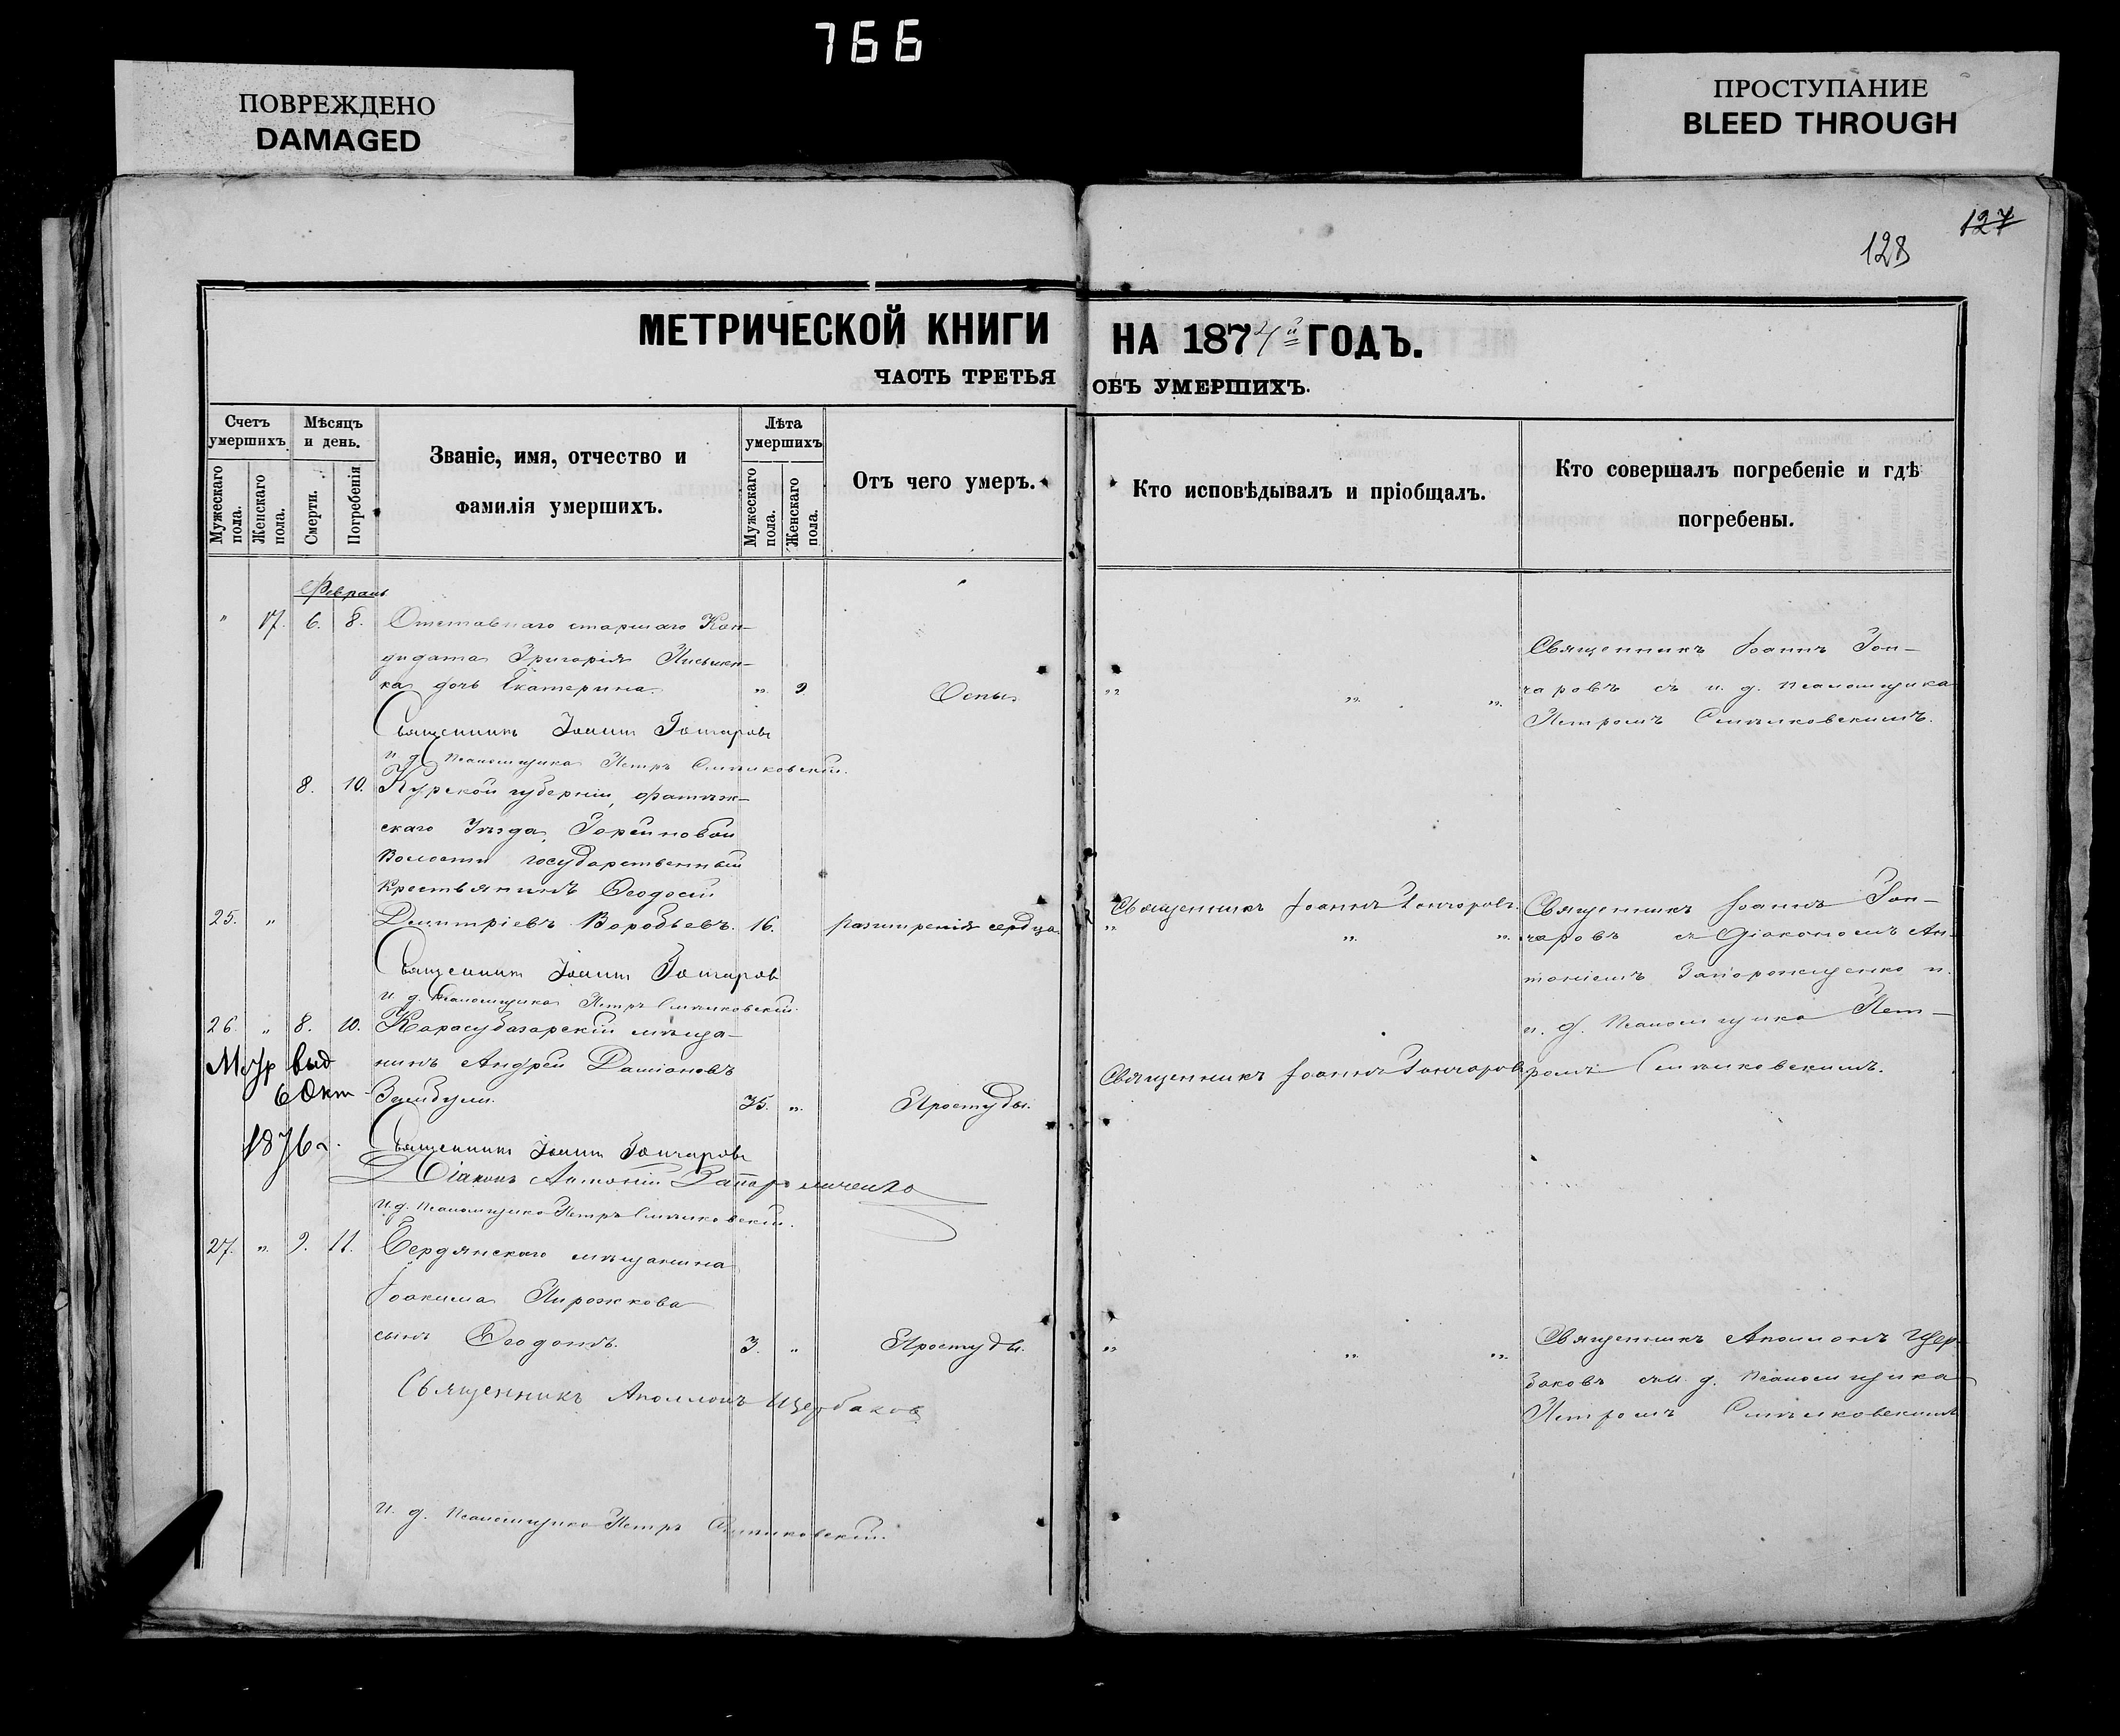 766
ПОВРЕЖДЕНО
DAMAGED
ПРОСТУПАНИЕ
BLEED THROUGH
127
128
МЕТРИЧЕСКОЙ КНИГИ НА 1874й ГОДЪ.
ЧАСТЬ ТРЕТЬЯ ОБЪ УМЕРШИХЪ.
Счетъ умершихъ
Мужескаго пола.
Женскаго пола.
Мѣсяцъ и день.
Смерти.
Погребенія
Званіе, имя, отчество и
фамилія умершихъ.
Лѣта умершихъ
Мужескаго пола.
Женскаго пола.
Отъ чего умеръ.
Кто исповѣдывалъ и пріобщалъ.
Кто совершалъ погребеніе и гдѣ
погребены.
Февраль
" 17. 6. 8. Отставнаго старшаго Кан-
дидата Григорія Письмен-
ка дочь Екатерина. " 9 Оспы
Священникъ Іоаннъ Гон-
чаровъ съ и. д. псаломщика
Петромъ
Священникъ Іоаннъ Гончаровъ
и д Псаломщика Петръ
8. 10. Курской губерніи, Фатеж-
скаго Уѣзда,
Волости государственный
крестьянинъ Ѳеодосій
25. " Димитріевъ Воробьевъ. 16. разширенія сердца
Священникъ Іоаннъ Гончаровъ.
Священникъ Іоаннъ Гон-
чаровъ съ Діакономъ Ан-
тоніемъ Запорожченко и
и. д. Псаломщика Пет-
ромъ
Священникъ Іоаннъ Гончаровъ
и д. Псаломщика Петръ
26. " 8. 10. Карасубазарскій мѣща-
нинъ Андрей Даміановъ
35. " Простуды.
Священникъ Іоаннъ Гончаровъ
выд
6 Окт
1876 г.
Священникъ Іоаннъ Гончаровъ
Діаконъ Антоній Запорожченко
и. д. Псаломщика Петръ
27. " 9. 11. Бердянскаго мѣщанина
Іоакима Пирожкова
сынъ Ѳеодотъ. 3. " Простуды.
Священникъ Аполлонъ Щер-
баковъ съ и. д. Псаломщика
Петромъ
Священникъ Аполлонъ Щербаковъ
и. д. Псаломщика Петръ